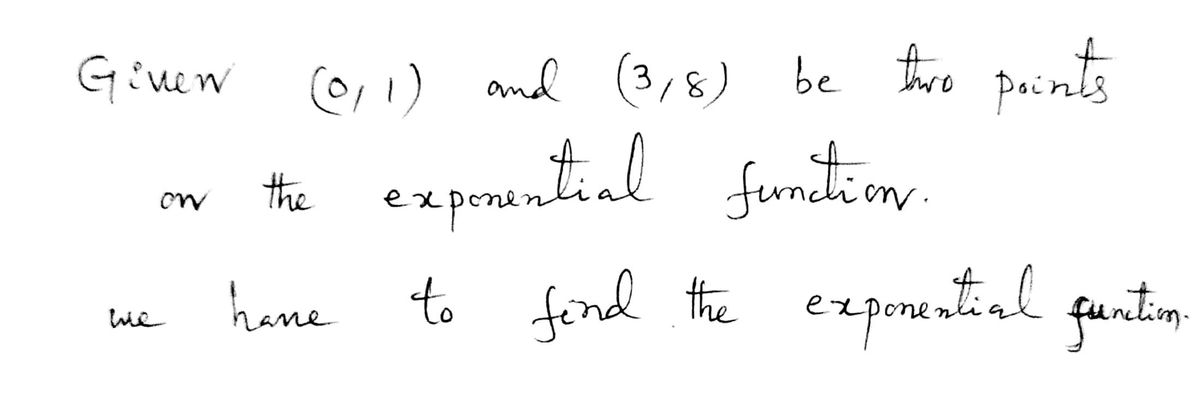 Given (0,1) and (3,8) be two points
on the exponential function.
we have to find the exponential function.